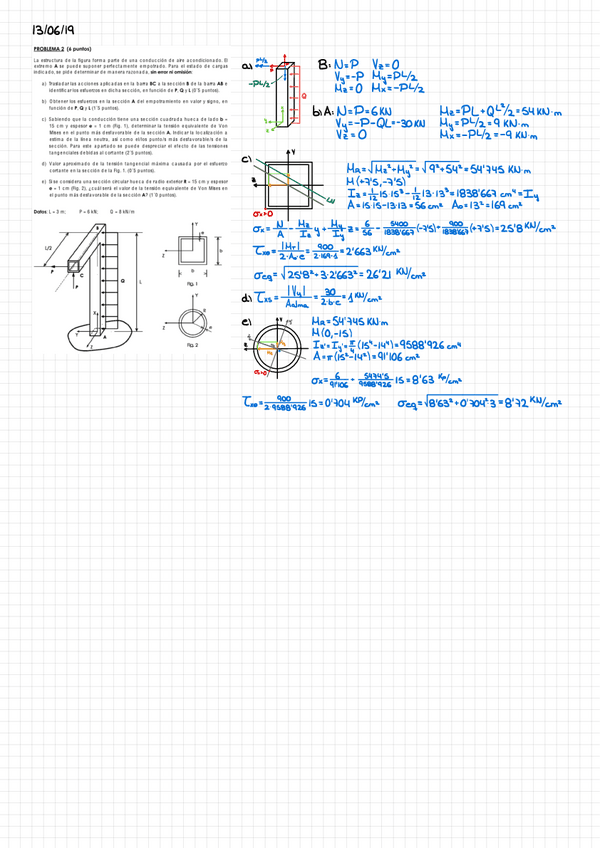 13/06/19
PROBLEMA 2 (6 puntos)
La estructura de la figura forma parte de una conducción de aire acondicionado. El
extremo A se puede suponer perfectamente empotrado. Para el estado de cargas
indicado, se pide determinar de manera razonada, sin error ni omisión:
a) Trasladar las acciones aplicadas en la barra BC a la sección B de la barra AB e
identificar los esfuerzos en dicha sección, en función de P, Q y L (0'5 puntos).
b) Obtener los esfuerzos en la sección A del empotramiento en valor y signo, en
función de P, Q y L (1'5 puntos).
c) Sabiendo que la conducción tiene una sección cuadrada hueca de lado b =
15 cm y espesor e = 1 cm (Fig. 1), determinar la tensión equivalente de Von
Mises en el punto más desfavorable de la sección A. Indicar la localización a
estima de la línea neutra, así como el/los punto/s más desfavorable/s de la
sección. Para este apartado se puede despreciar el efecto de las tensiones
tangenciales debidas al cortante (2'5 puntos).
d) Valor aproximado de la tensión tangencial máxima causada por el esfuerzo
cortante en la sección de la Fig. 1. (0'5 puntos).
e) Si se considera una sección circular hueca de radio exterior R = 15 cm y espesor
e = 1 cm (Fig. 2), ¿cuál será el valor de la tensión equivalente de Von Mises en
el punto más desfavorable de la sección A? (1'0 puntos).
Datos: L = 2 m; P = 6 kN; Q = 8 kN/m
L/2
B
C
P
P
Q
L
X
Y
Z
A
Y
Z
e
b
b
Fig. 1
Y
Z
R
e
Fig. 2
a)
PL/2
-PL/2
Q
B: N=P Vz=0
Vy=-P My=PL/2
Mz=0 Mx=-PL/2
b) A: N=P=6KN Mz=PL+QL²/2=54 KN·m
Vy=-P-QL=-30 KN My=PL/2=9 KN·m
Vz=0 Mx=-PL/2=-9 KN·m
c)
Y
z
LN
σx=0
Ma=√Mz²+My²=√9²+54²=54'745 KN·m
M(+7'5,-7'5)
Iz=1/12·15·15³-1/12·13·13³=1838'667 cm⁴=Iy
A=15·15-13·13=56 cm² Ao=13²=169 cm²
σx=N/A-Mz/Iz y+My/Iy z=6/56-5400/1838'667(-7'5)+900/1838'667(+7'5)=25'8 KN/cm²
τxθ=|Mt|/2·Ao·e=900/2·169·1=2'663 KN/cm²
σeq=√25'8²+3·2'663²=26'21 KN/cm²
d) τxs=|Vy|/Aalma=30/2·b·e=1 KN/cm²
e)
Ma=54'745 KN·m
M(0,-15)
Iz=Iy=π/4(15⁴-14⁴)=9588'926 cm⁴
A=π(15²-14²)=91'106 cm²
σx=0
σx=6/91'106+5474'5/9588'926 15=8'63 KP/cm²
τxθ=900/2·9588'926 15=0'704 KP/cm² σeq=√8'63²+0'704²·3=8'72 KN/cm²